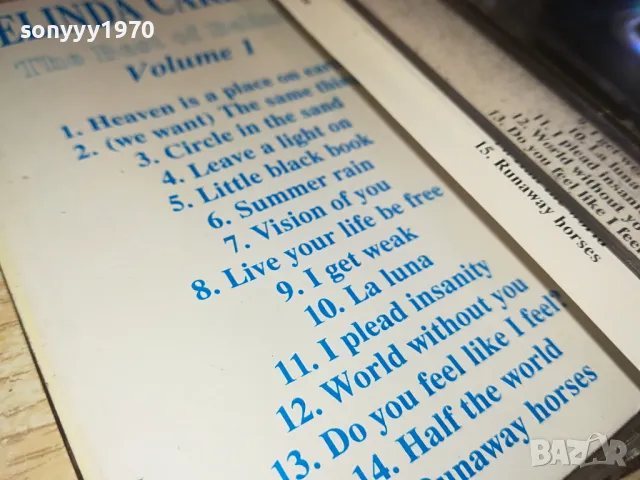 sonyyy1970
The Best of
Volume 1
1. Heaven is a place on
2. (we want) The same
3. Circle in the sand
4. Leave a light on
5. Little black book
6. Summer rain
7. Vision of you
8. Live your life be free
9. I get weak
10. La luna
11. I plead insanity
12. World without you
13. Do you feel like I feel?
14. Half the world
horses
10. La luna
11. I plead insanity
12. World without you
13. Do you feel like I feel
15. Runaway horses
bazar.bg